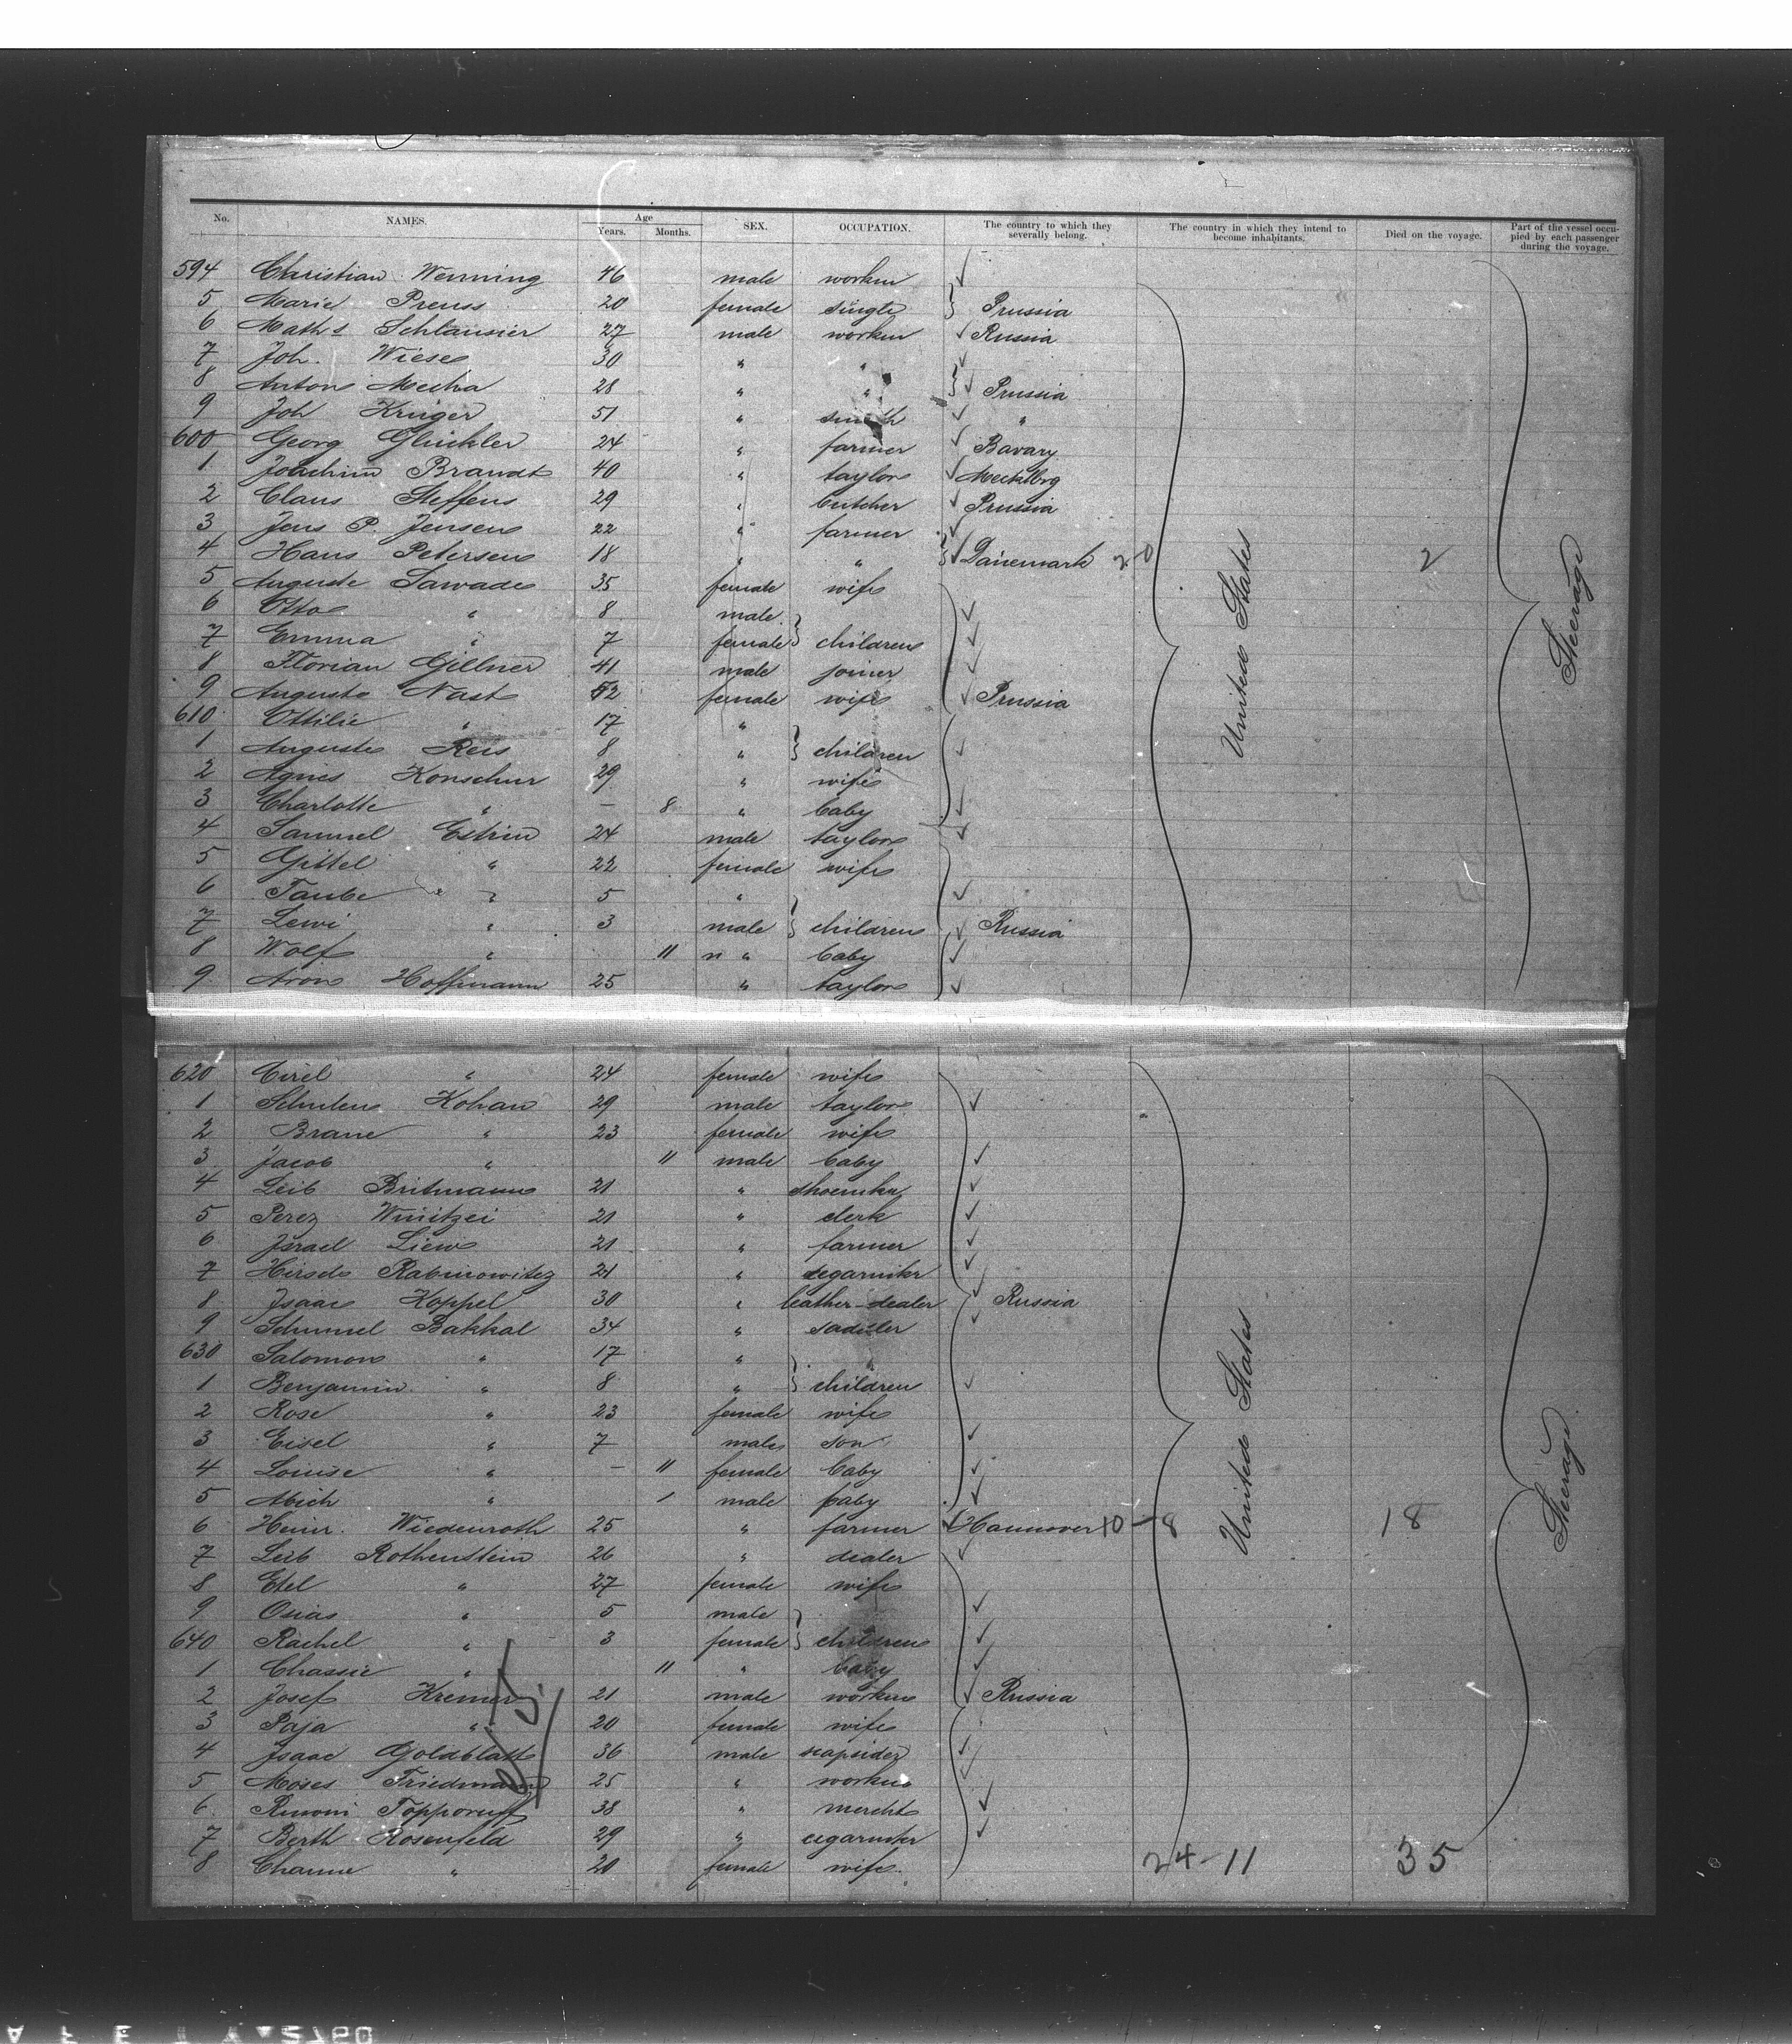 No. NAMES. Age Years. Months. SEX. OCCUPATION. The country to which they severally belong. The country in which they intend to become inhabitants. Died on the voyage. Part of the vessel occupied by each passenger during the voyage.
594 Christian Wenning 46 male worker
5 Marie Preuss 20 female single Prussia
6 Maths Schlausier 27 male worker Russia
7 Joh. Wiese 30 " "
8 Anton Mecha 28 " " Prussia
9 Joh Krüger 51 " smith "
600 Georg Glückler 24 " farmer Bavary
1 Joachim Brandt 40 " taylor Mecklbrg
2 Claus Steffens 29 " butcher Prussia
3 Jens P. Jensen 22 " farmer
4 Hans Petersen 18 " " Dänemark 2-0 2
5 Auguste Sawade 35 female wife
6 Otto " 8 male
7 Emma " 7 female children
8 Florian Gillner 41 male joiner
9 Auguste Nast 52 female wife Prussia
610 Ottilie " 17 "
1 Auguste Reis 8 " children
2 Agnes Konschur 29 " wife
3 Charlotte " – 8 " baby
4 Samuel Estrin 24 male taylor
5 Gittel " 22 female wife
6 Taube " 5 "
7 Lewi " 3 male children Russia
8 Wolf " 11 " baby
9 Aron Hoffmann 25 " taylor
United States
Steerage
620 Cirel " 24 female wife
1 Kohan 29 male taylor
2 Brane " 23 female wife
3 Jacob " 11 male baby
4 Leib Britmann 21 " shoemker
5 Perez 21 " clerk
6 Israel Liew 21 " farmer
7 Hirsch Rabinowitz 21 " segarmkr
8 Isaac Koppel 30 " leather-dealer Russia
9 Schmuel Bakkal 34 " sadler
630 Salomon " 17 "
1 Benjamin " 8 " children
2 Rose " 23 female wife
3 Eisel " 7 male son
4 Louise " – 11 female baby
5 Abich " 1 male baby
6 Heinr. Wiedenroth 25 " farmer Hannover 10-8 18
7 Leib Rothenstein 26 " dealer
8 Etel " 27 female wife
9 Osias " 5 male
640 Rachel " 3 female children
1 Chassie " 11 " baby
2 Josef Kremer 21 male worker Russia
3 Paja " 20 female wife
4 Isaac Goldblatt 36 male
5 Moses Friedmann 25 " worker
6 38 " mercht
7 Berth Rosenfeld 29 " cigarmker
8 Channe " 20 female wife 24-11 35
United States
Steerage